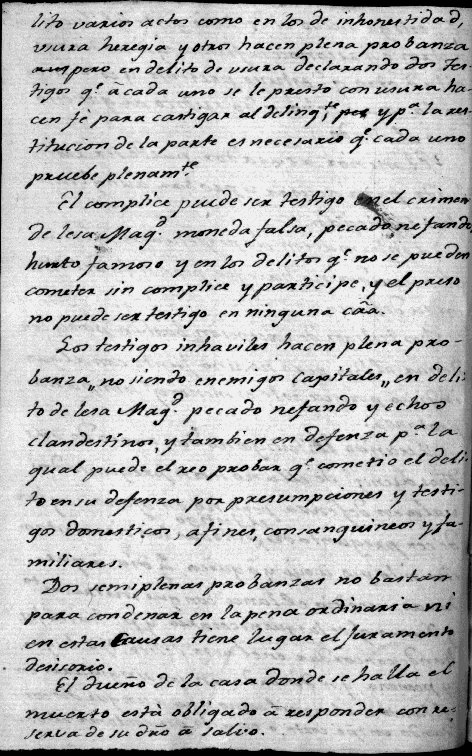 lito varios actos como en los de inhonestidad,
usura heregia y otros hacen plena probanza
pero en delito de usura declarando dos tes-
tigos q.e â cada uno se le presto con usura ha-
cen fe para castigar al delinq.te y p.a la res-
titucion de la parte es necesario q.e cada uno
pruebe plenam.te
El complice puede ser testigo en el crimen
de lesa Mag.d moneda falsa, pecado nefando,
hurto famoso y en los delitos q.e no se pueden
cometer sin complice y participe, y el preso
no puede ser testigo en ninguna caa.
Los testigos inhaviles hacen plena pro-
banza,, no siendo enemigos capitales,, en deli-
to de lesa Mag.d pecado nefando y echos
clandestinos, y tambien en defenza p.a la
qual puede el reo probar q.e cometio el deli-
to en su defenza por presumpciones y testi-
gos domesticos, afines, consanguineos y fa-
miliares.
Dos semiplenas probanzas no bastan
para condenar en la pena ordinaria ni
en estas Causas tiene lugar el Juramento
desisorio.
El dueño de la casa donde se halla el
muerto està obligado â responder con re-
serva de su dro â salvo.